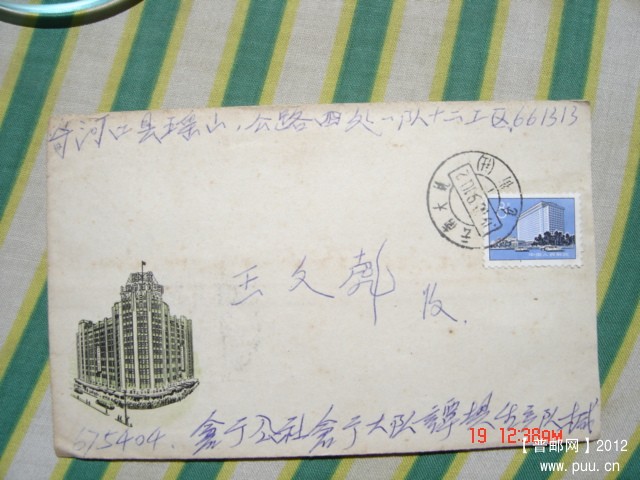 寄河口县瑶山，公路四处一队十二工区，661313
云南大姚
中国人民邮政
王文彪 收
675404. 仓子公社仓子大队谭旧生产队 缄
19 12:38AM
【普邮网】2012
www.puu.cn